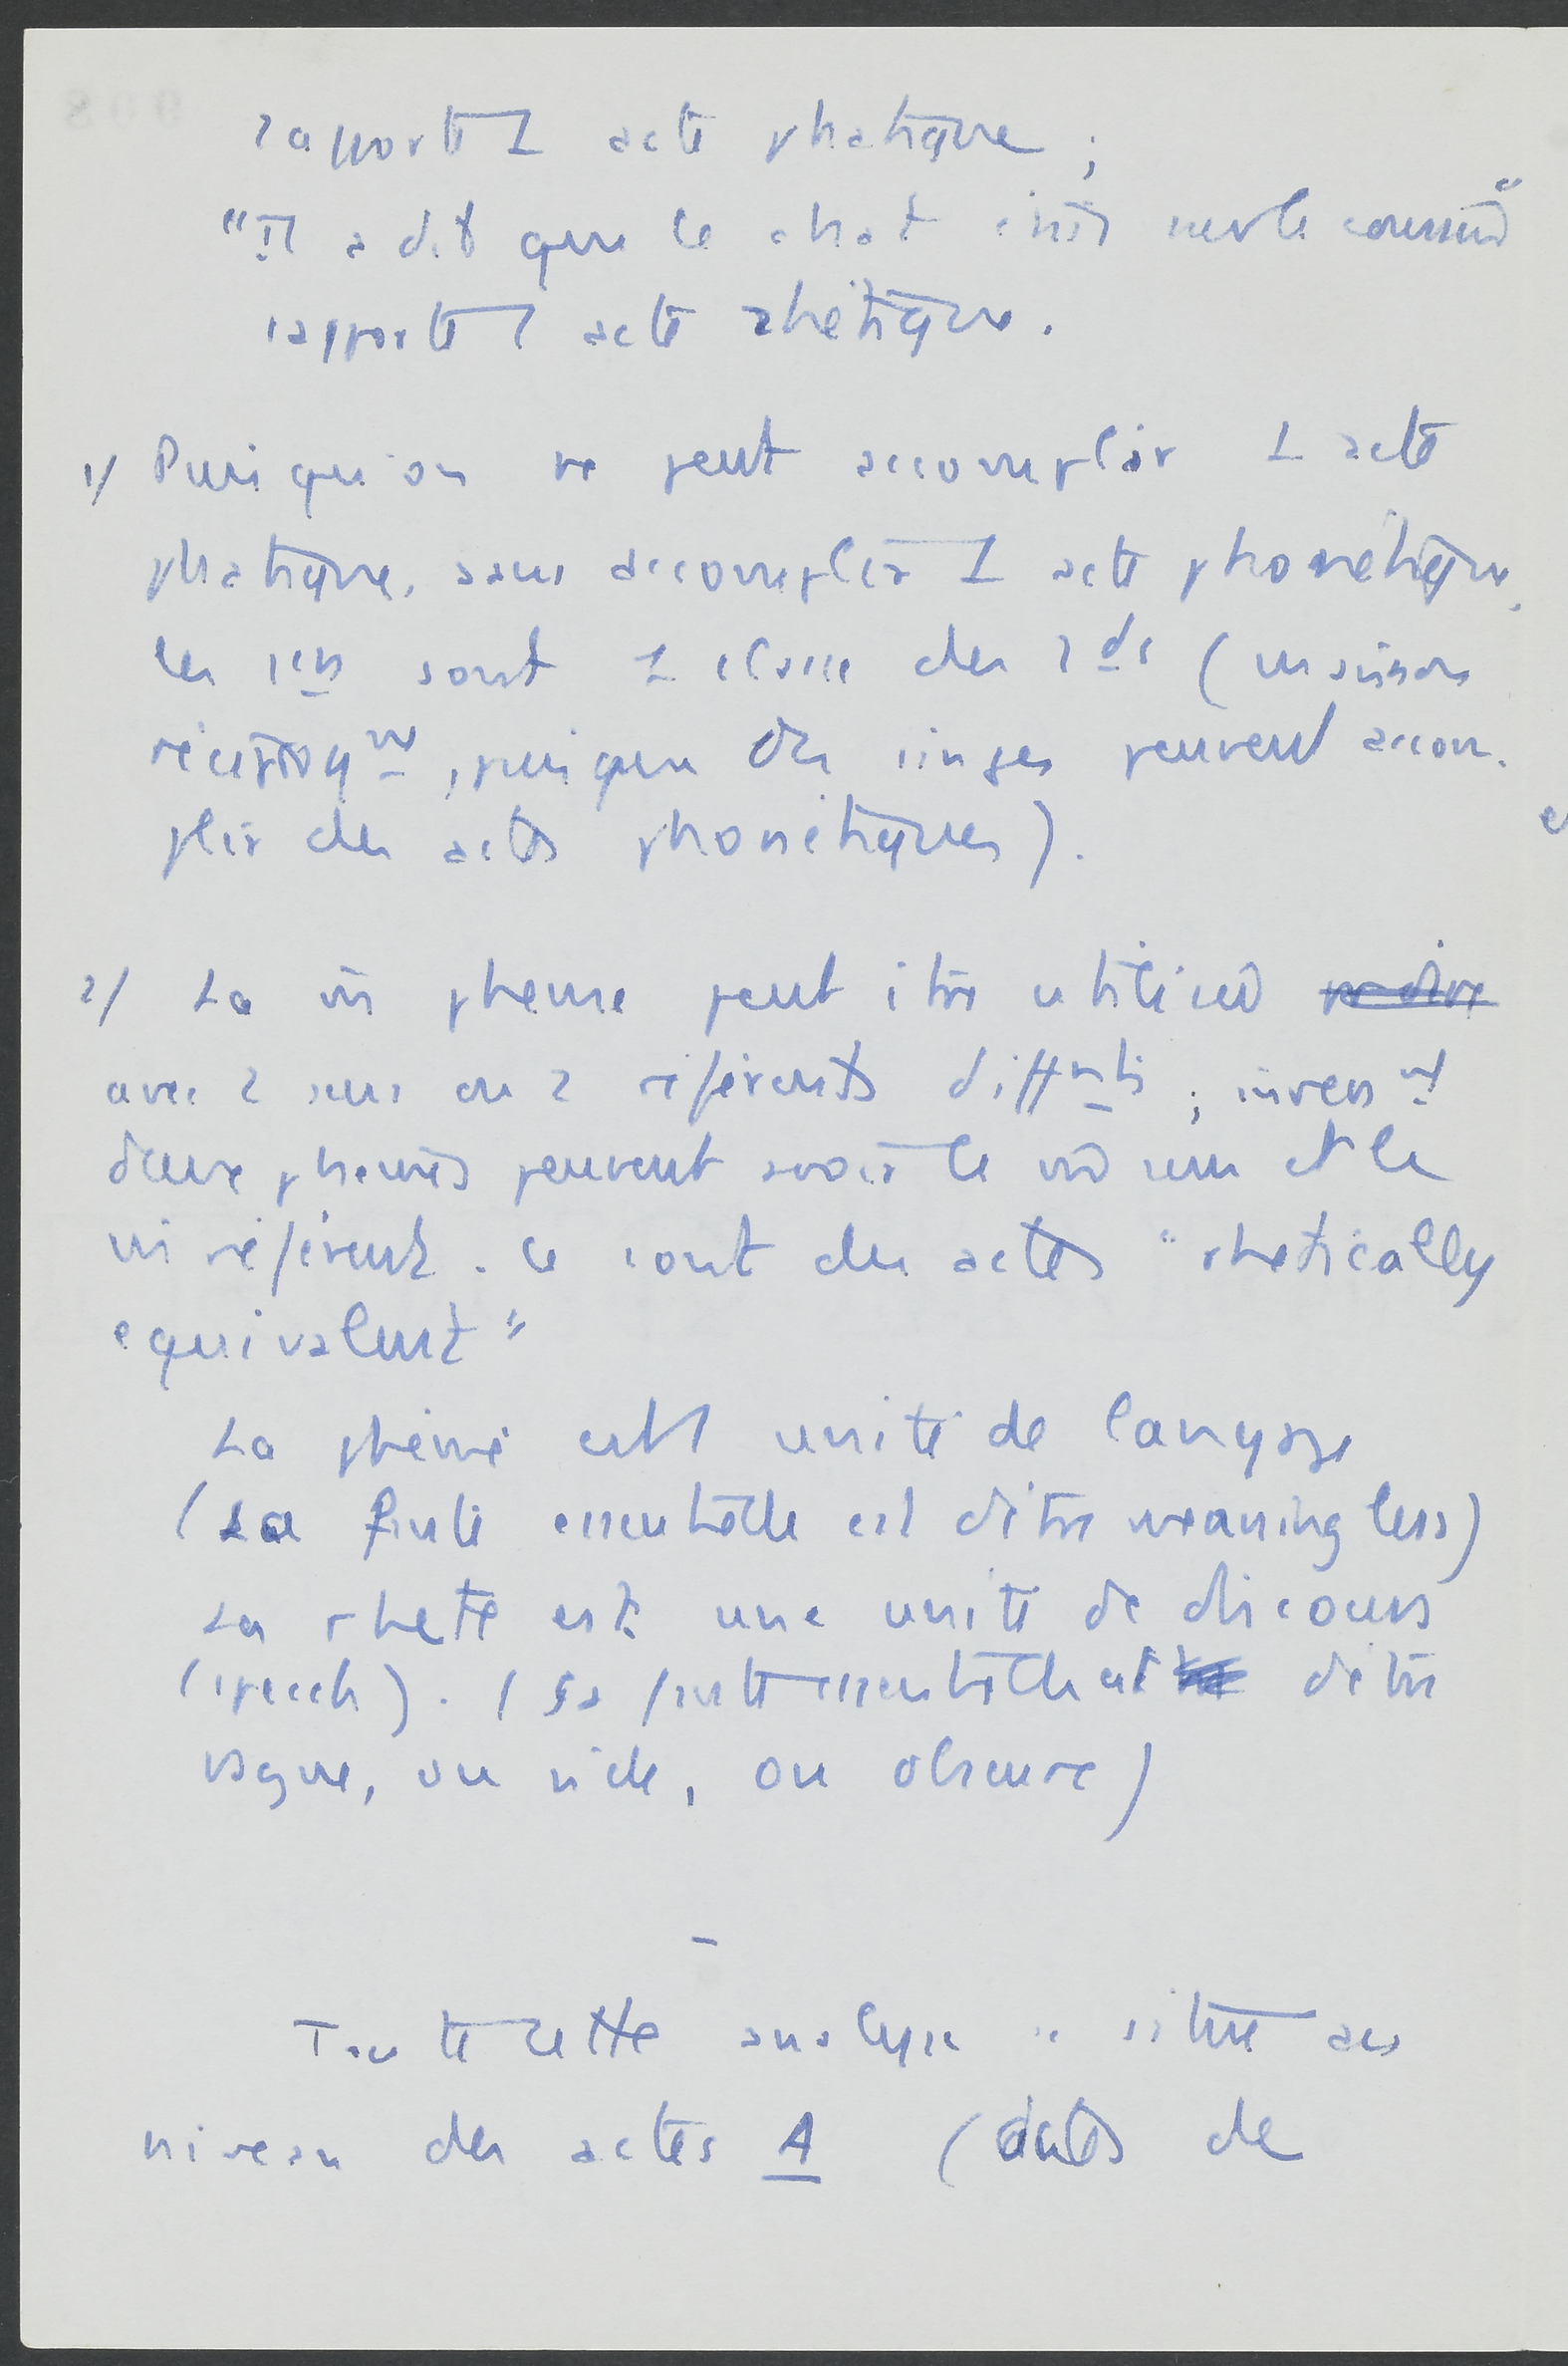 rapporte 1 acte phatique ;
"Il a dit que le chat était sur le coussin"
rapporte 1 acte rhétique.
1/ Puisqu'on ne peut accomplir 1 acte
phatique, sans accomplir 1 acte phonétique,
les 1ers sont 1 classe des 2ds (mais non
réciproqnt, puisque des singes peuvent accom-
plir des actes phonétiques).
2/ La m phème peut être utilisée
avec 2 sens ou 2 référents diffnts ; inversnt
deux phèmes peuvent avoir le m sens et le
m référent. Ce sont des actes "rhetically
equivalent"
La phème est 1 unité de langage
(sa faute essentielle est d'être meaningless)
La rhète est une unité de discours
(speech). (sa faute essentielle est d'être
vague, ou vide, ou obscure)
–
Toute cette analyse se situe au
niveau des actes A (actes de